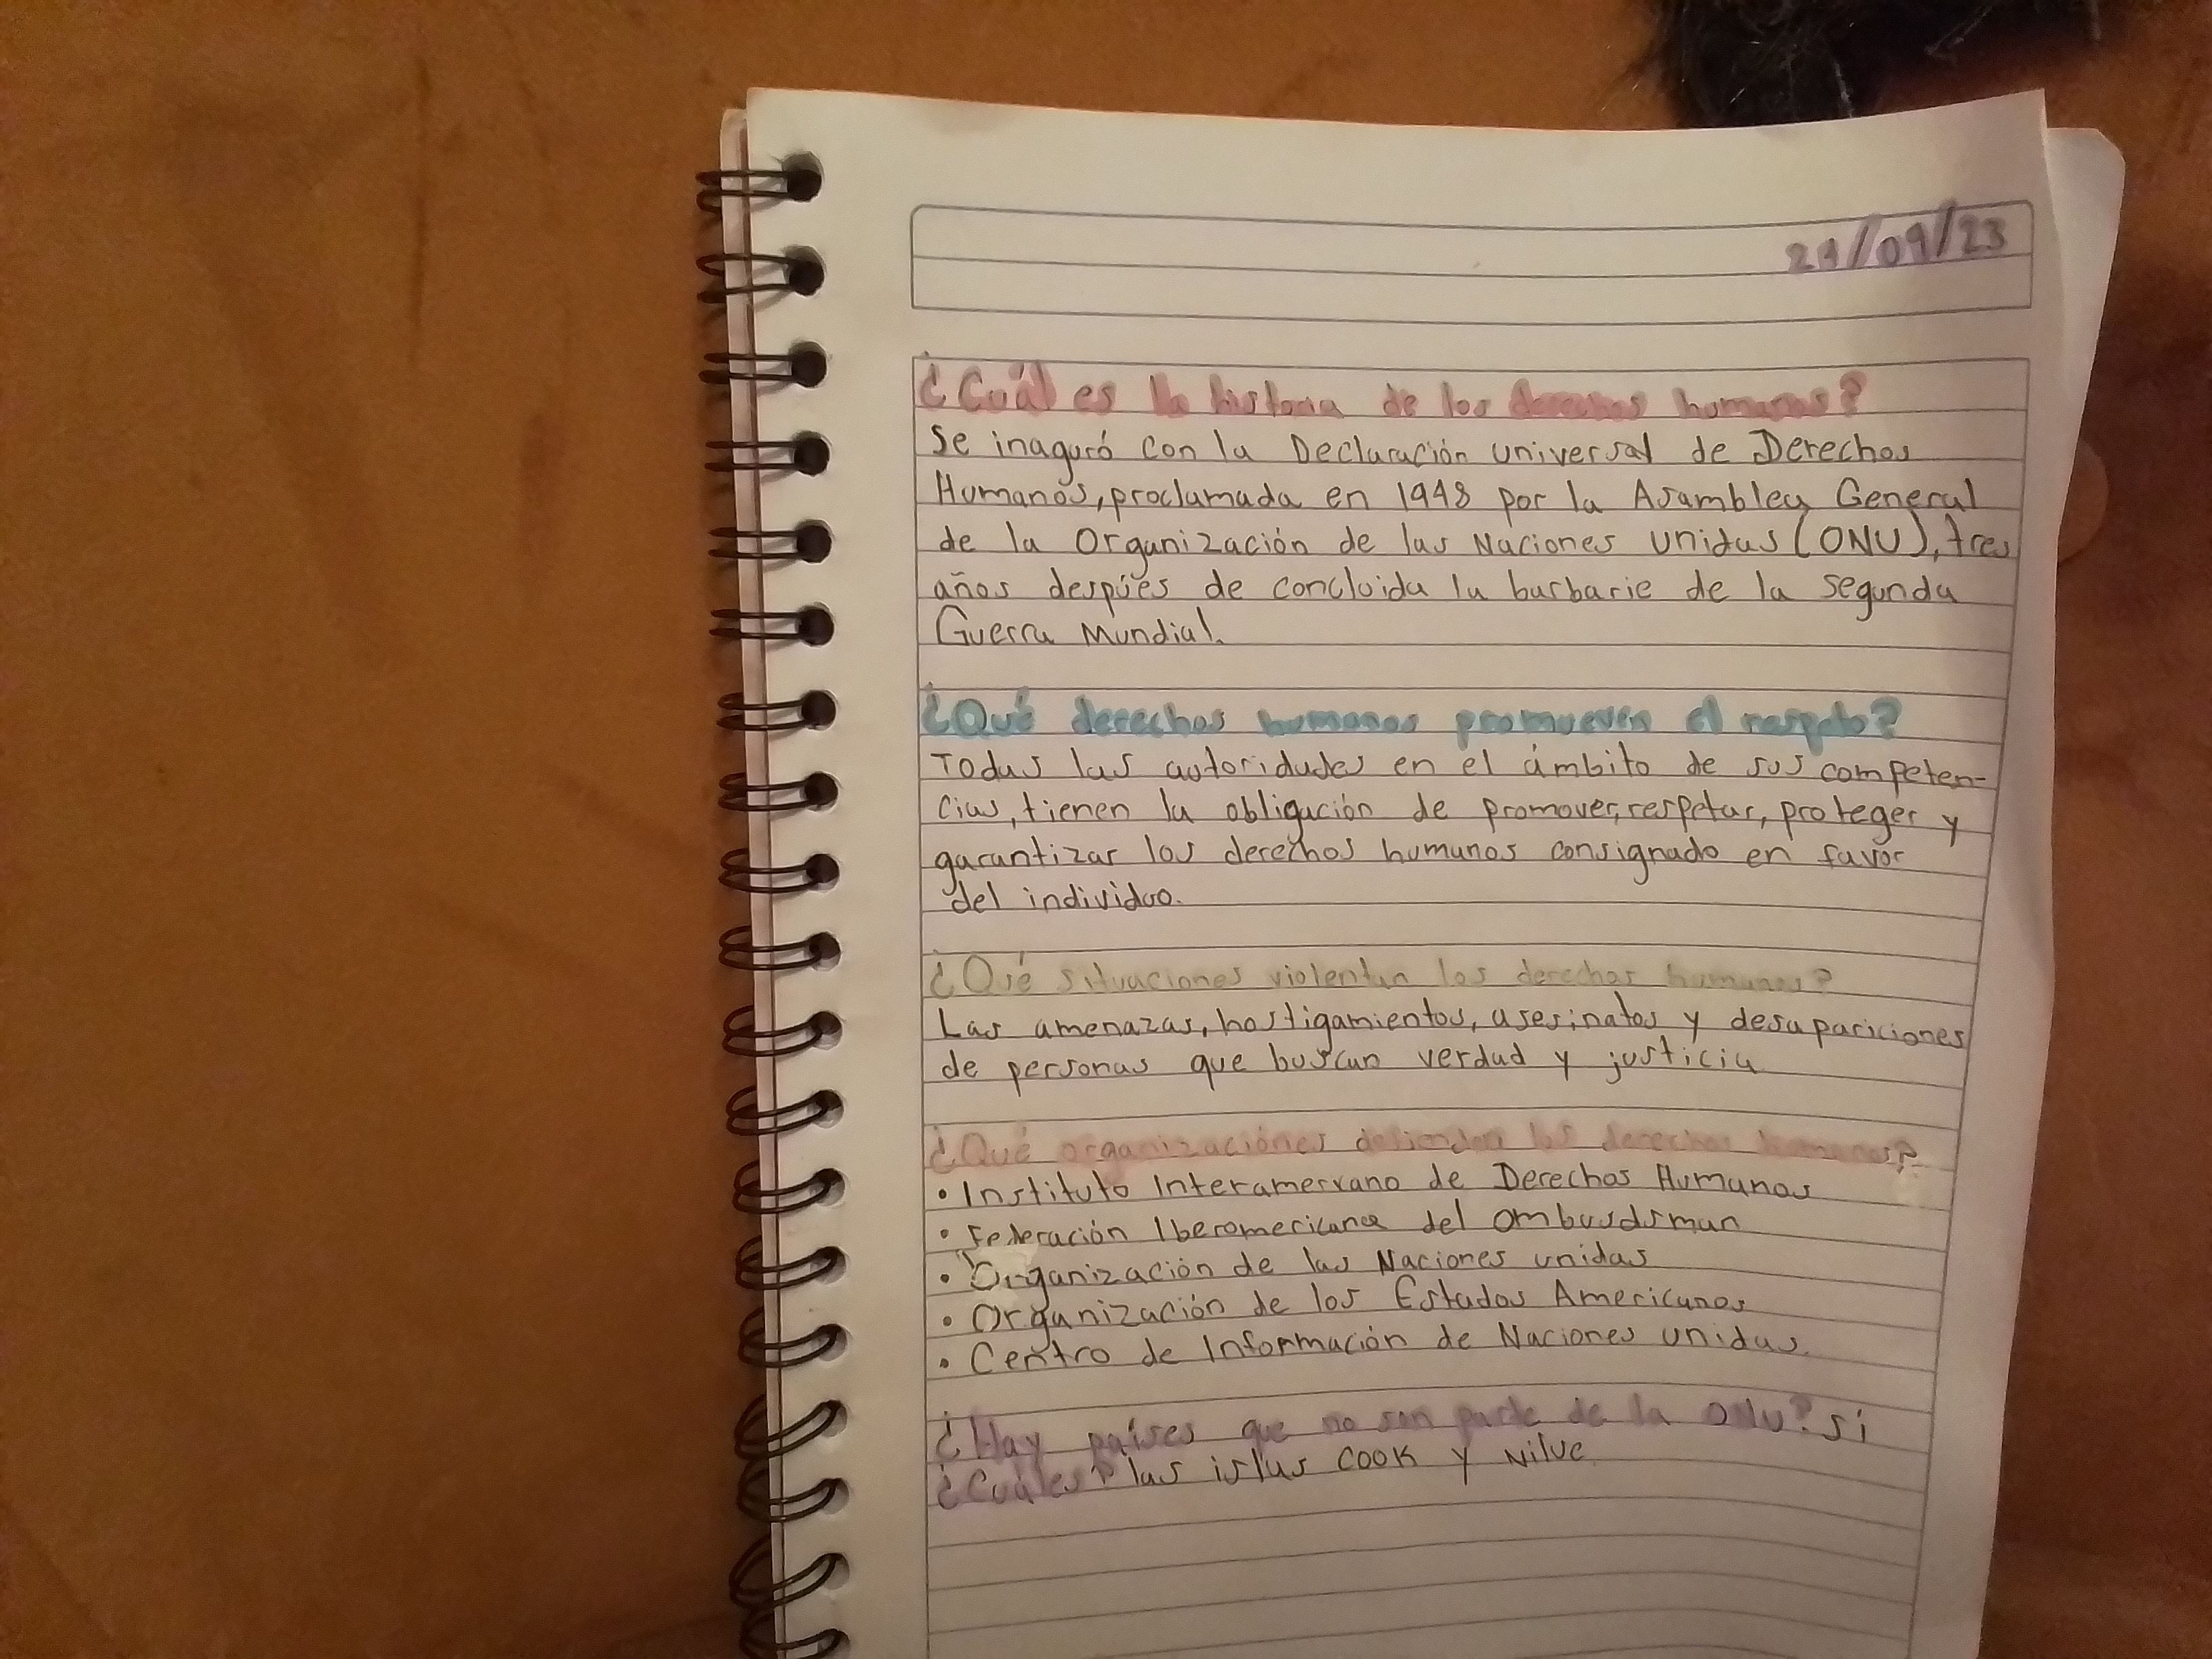 21/09/23
¿Cuál es la historia de los derechos humanos?
Se inaguró con la Declaración universal de Derechos
Humanos, proclamada en 1948 por la Asamblea General
de la Organización de las Naciones unidas (ONU), tres
años despúes de concluida la barbarie de la segunda
Guerra Mundial.
¿Qué derechos humanos promueven el respeto?
Todas las autoridades en el ámbito de sus competen-
cias, tienen la obligación de promover, respetar, proteger y
garantizar los derechos humanos consignado en favor
del individuo.
¿Qué situaciones violentan los derechos humanos?
Las amenazas, hostigamientos, asesinatos y desapariciones
de personas que buscan verdad y justicia
¿Qué organizaciónes defienden los derechos humanos?
• Instituto Interamerxano de Derechos Humanos
• Federación Iberomericana del ombusdsman
• Organización de las Naciones unidas
• Organización de los Estados Americanos
• Centro de Información de Naciones unidas.
¿Hay países que no son parte de la ONU? sí
¿Cuáles? las islas cook y Nilue